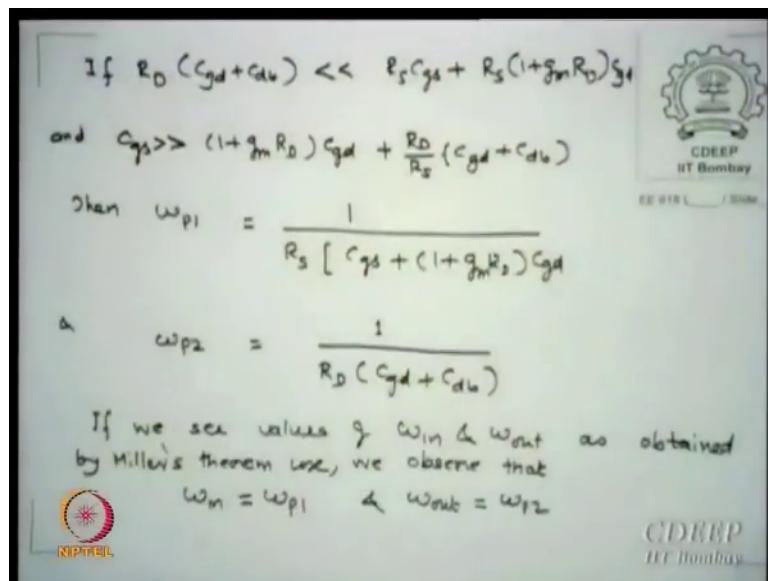 If R_D (C_gd + C_db) << R_S C_gs + R_S (1+g_m R_D) C_gd
and C_gs >> (1+g_m R_D) C_gd + R_D/R_S (C_gd + C_db)
Then ω_P1 = 1 / R_S [ C_gs + (1+g_m R_D) C_gd
& ω_P2 = 1 / R_D (C_gd + C_db)
If we see values of ω_in & ω_out as obtained
by Miller's theorem use, we observe that
ω_in = ω_P1 & ω_out = ω_P2
CDEEP
IIT Bombay
EE 618 L / Slide
NPTEL
CDEEP
IIT Bombay